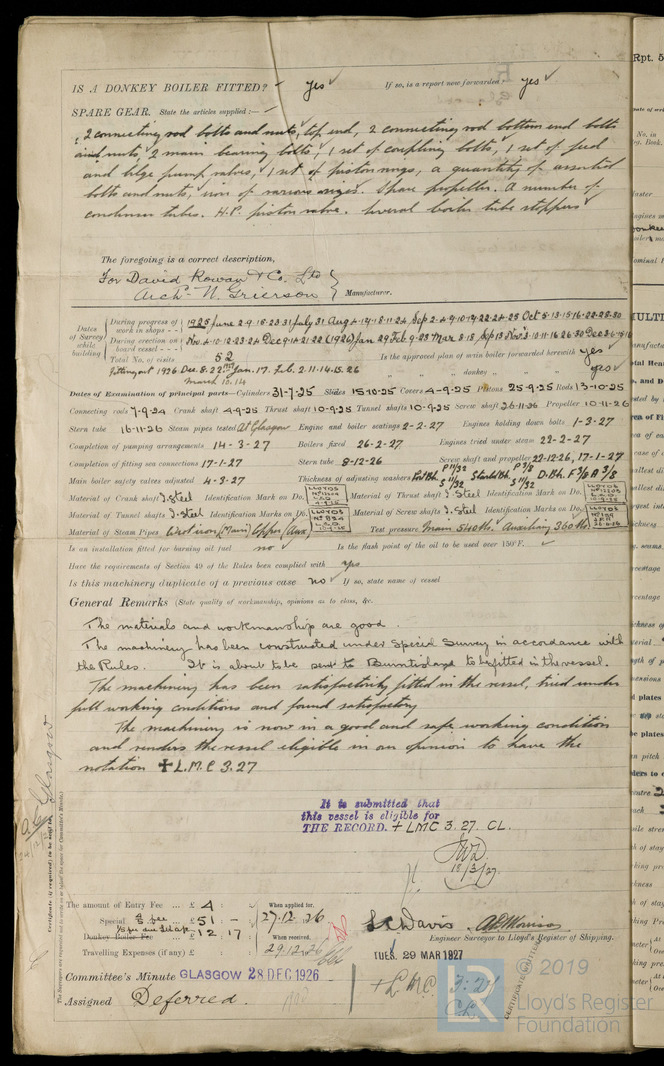 IS A DONKEY BOILER FITTED? yes If so, is a report now forwarded? yes
SPARE GEAR. State the articles supplied:—
2 connecting rod bolts and nuts, top end, 2 connecting rod bottom end bolts
and nuts, 2 main bearing bolts, 1 set of coupling bolts, 1 set of feed
and bilge pump valves, 1 set of piston rings, a quantity of assorted
bolts and nuts, iron of various sizes. Spare propeller. A number of
condenser tubes. H.P. piston valve. Several boiler tube stoppers
The foregoing is a correct description,
For David Rowan & Co. Ltd
Archd. W. Grierson Manufacturer.
Dates of Survey while building
During progress of work in shops - - 1925 June 2-9-18-23-31 July 31 Aug 4-14-18-11-24 Sep 2-4-9-10-14-22-24-25 Oct 5-13-15-16-22-28-30
During erection on board vessel - - - Nov 4-10-12-23-24 Dec 9-14-21-22 (1926) Jan 29 Feb 9-23 Mar 8-18 Sep 13 Nov 3-10-11-16-26-30 Dec 3-6-15-16
Total No. of visits 52 Is the approved plan of main boiler forwarded herewith yes
Fitting out 1926 Dec 8.22 1927 Jan. 17. Feb. 2.11.14.15.26 " " " donkey " " " yes
March 10.14
Dates of Examination of principal parts—Cylinders 31-7-25 Slides 15-10-25 Covers 4-9-25 Pistons 25-9-25 Rods 13-10-25
Connecting rods 7-9-24 Crank shaft 4-9-25 Thrust shaft 10-9-25 Tunnel shafts 10-9-25 Screw shaft 26-11-26 Propeller 10-11-26
Stern tube 16-11-26 Steam pipes tested at Glasgow Engine and boiler seatings 2-2-27 Engines holding down bolts 1-3-27
Completion of pumping arrangements 14-3-27 Boilers fixed 26-2-27 Engines tried under steam 22-2-27
Completion of fitting sea connections 17-1-27 Stern tube 8-12-26 Screw shaft and propeller 22-12-26, 17-1-27
Main boiler safety valves adjusted 4-3-27 Thickness of adjusting washers Port Blr. P 11/32 S 11/32 Starbd Blr. P 3/8 S 11/32 D. Blr. F 3/8 A 3/8
Material of Crank shaft I. Steel Identification Mark on Do. LLOYDS Material of Thrust shaft I. Steel Identification Mark on Do. LLOYDS
Material of Tunnel shafts I. Steel Identification Marks on Do. LLOYDS Material of Screw shafts I. Steel Identification Marks on Do. LLOYDS
Material of Steam Pipes Wrot iron (Main) Copper (Aux) Test pressure Main 540 lb. Auxiliary 360 lb
Is an installation fitted for burning oil fuel no Is the flash point of the oil to be used over 150°F.
Have the requirements of Section 49 of the Rules been complied with yes
Is this machinery duplicate of a previous case no If so, state name of vessel
General Remarks (State quality of workmanship, opinions as to class, &c.
The materials and workmanship are good.
The machinery has been constructed under special Survey in accordance with
the Rules. It is about to be sent to Burntisland to be fitted in the vessel.
The machinery has been satisfactorily fitted in the vessel, tried under
full working conditions and found satisfactory
The machinery is now in a good and safe working condition
and renders the vessel eligible in our opinion to have the
notation + L.M.C 3.27
It is submitted that
this vessel is eligible for
THE RECORD. + LMC 3. 27. CL.
18/3/27
Glasgow
Certificate (if required) to be sent to
The amount of Entry Fee ... £ 4 : When applied for,
Special ... £ 51 : - 27.12.26
Donkey Boiler Fee ... £ 12. 17 When received,
Travelling Expenses (if any) £ : 29.12.26
L.C. Davis
Engineer Surveyor to Lloyd's Register of Shipping.
TUES. 29 MAR 1927
Committee's Minute GLASGOW 28 DEC 1926
Assigned Deferred.
+ L.M.C. 3:27
CL.
CERTIFICATE WRITTEN
© 2019
Lloyd's Register
Foundation
LR
Rpt. 5